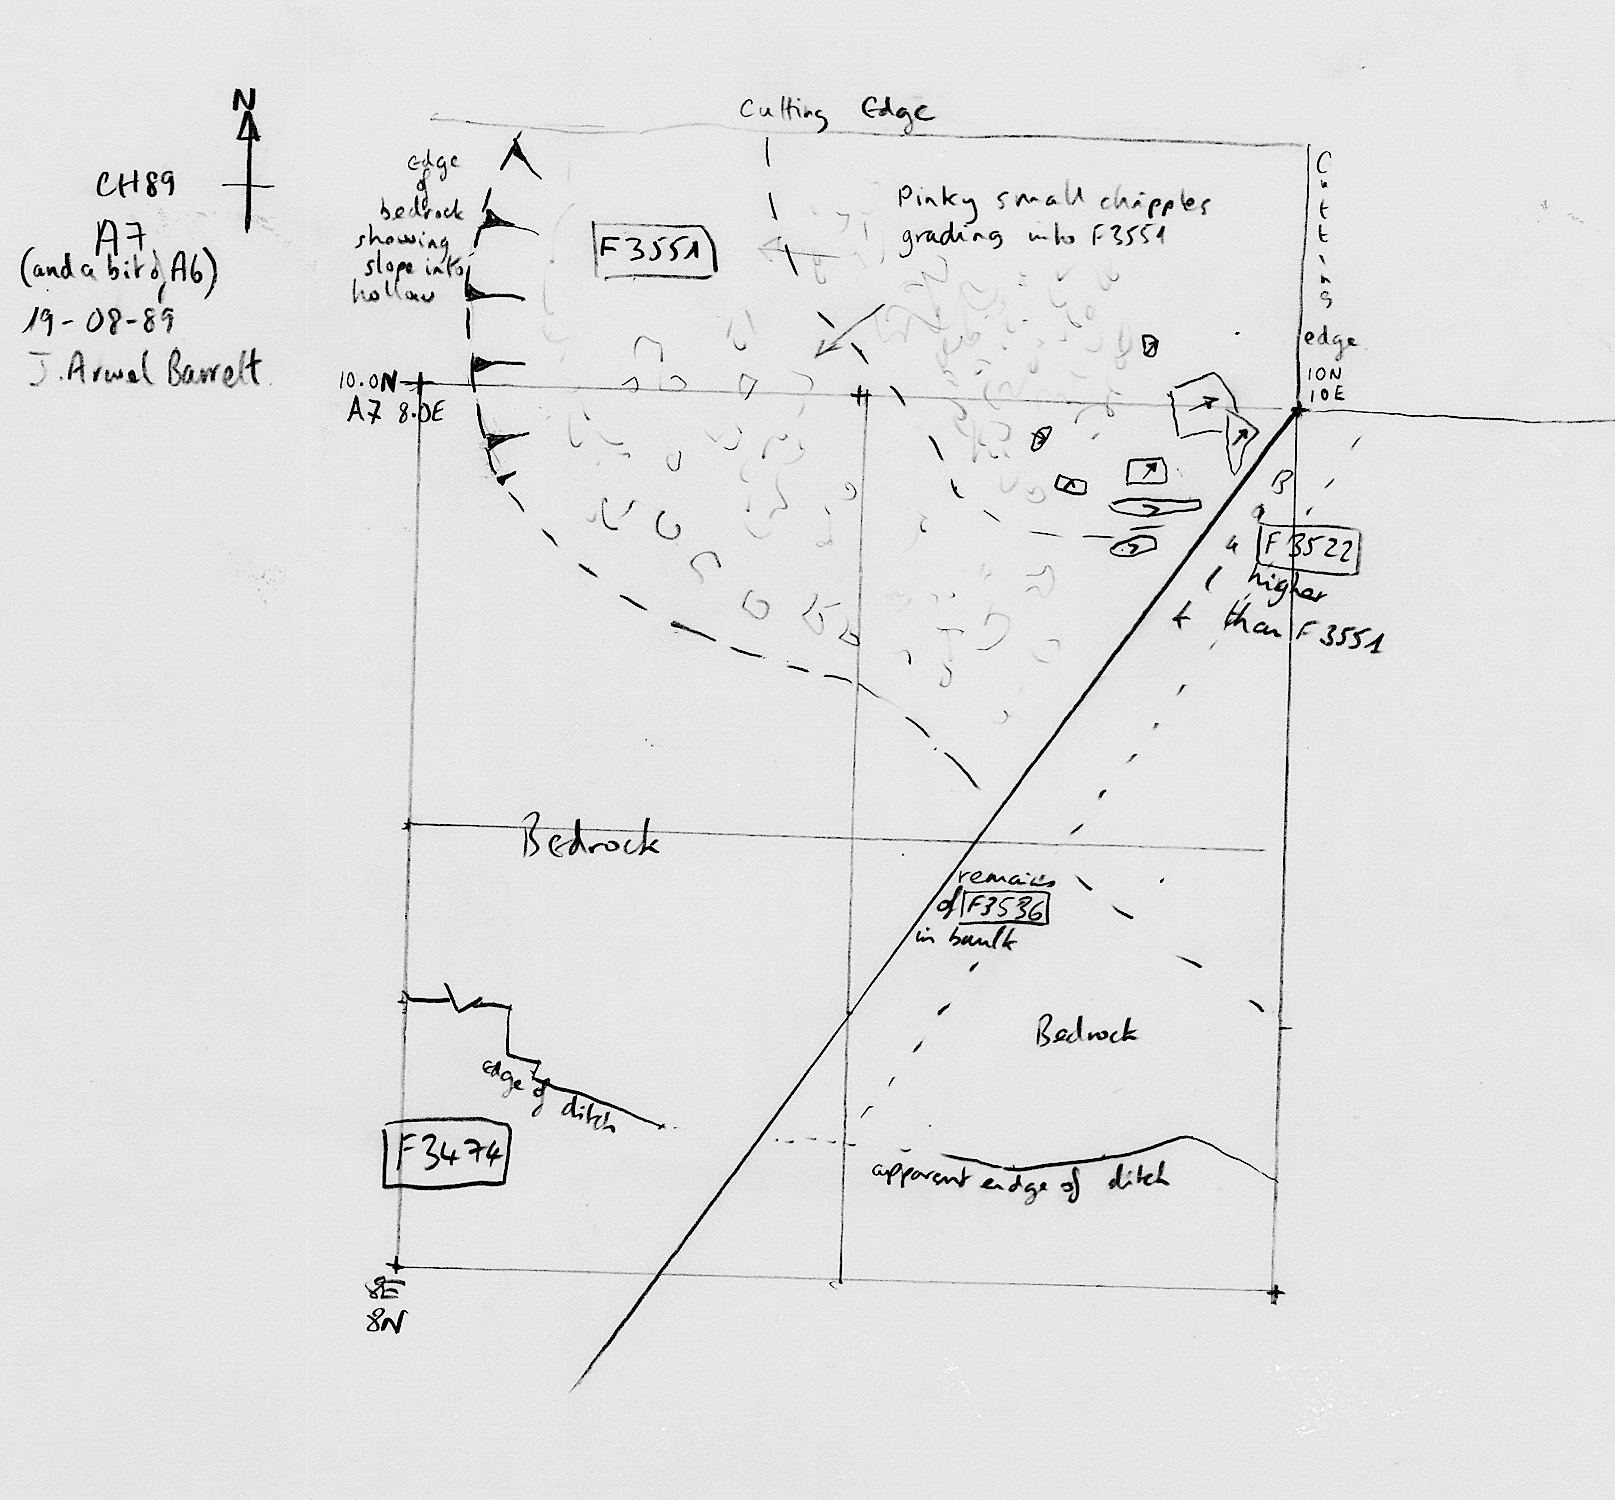 N
CH89
A7
(and a bit of A6)
19-08-89
J. Arwel Barrett
Cutting Edge
edge
of
bedrock
showing
slope into
hollow
F3551
Pinky small chipples
grading into F3551
Cutting
edge
10N
10E
10.0N
A7 8.0E
Baulk
F3522
higher
than F3551
Bedrock
remains
of F3536
in baulk
Bedrock
edge of ditch
F3474
apparent edge of ditch
8E
8N